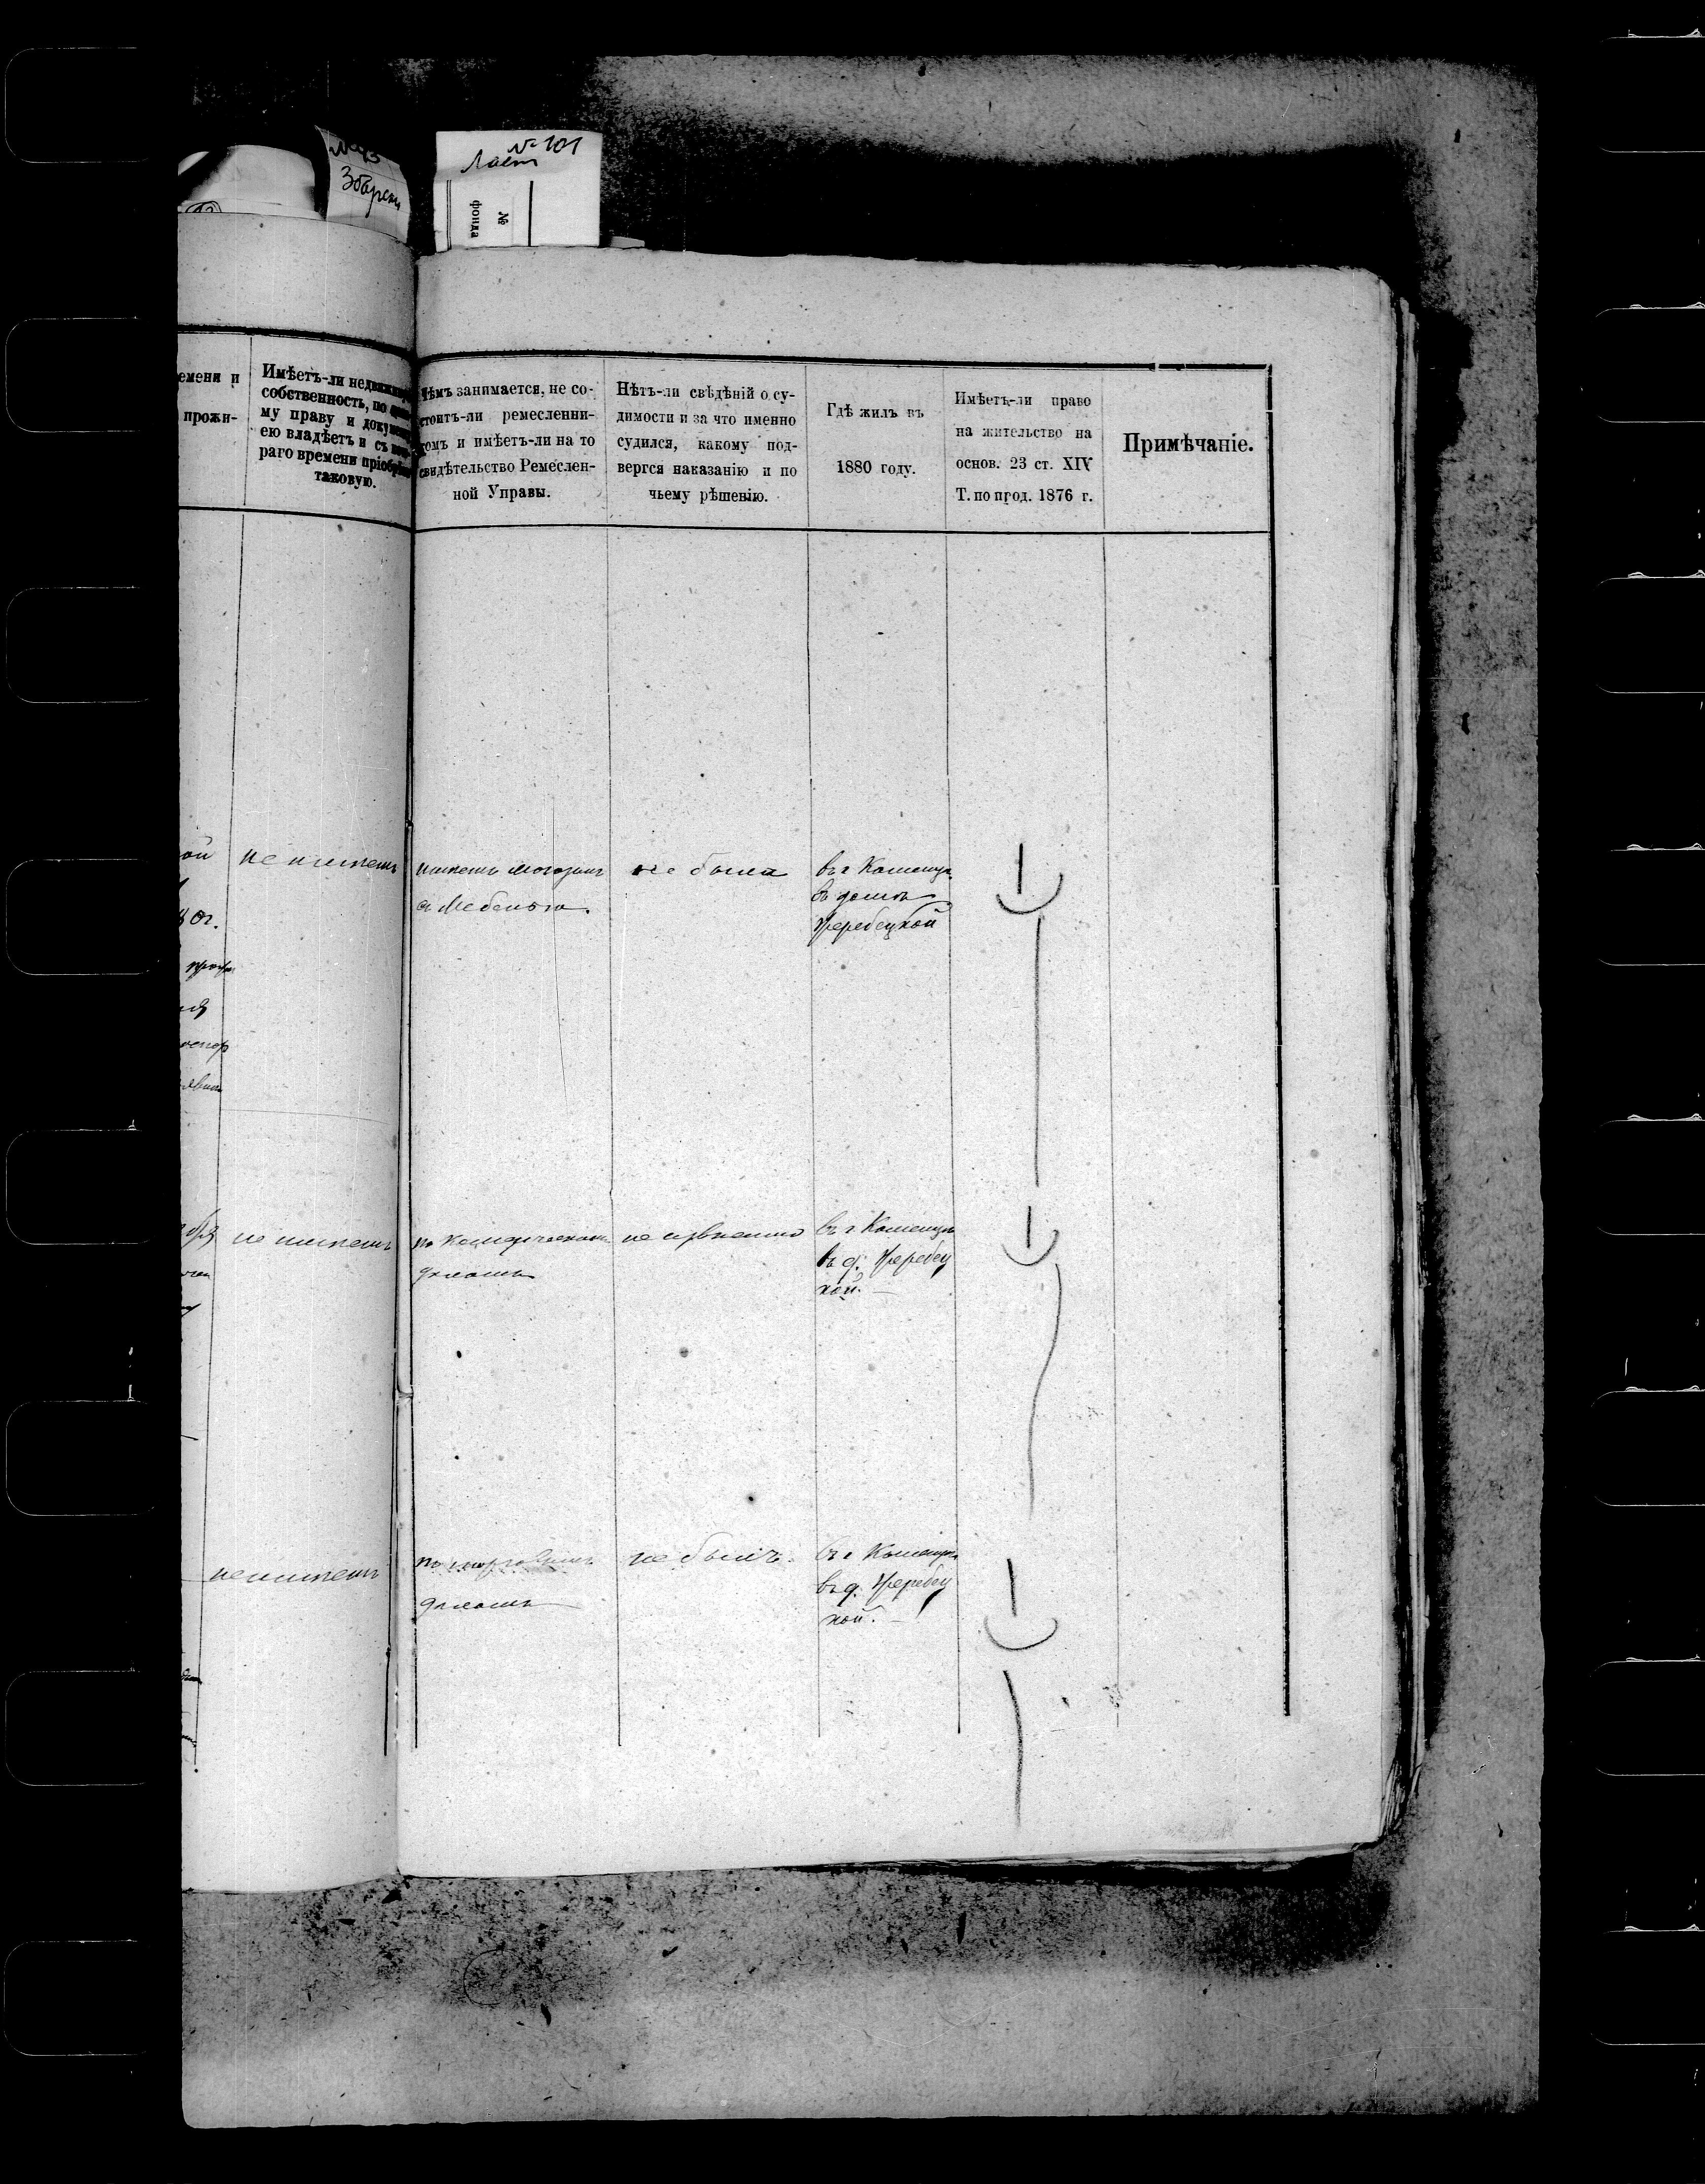 № 101
Ласт
№ 43
Збарский
№
фонда
емени и
прожи-
Имѣетъ-ли недвижимую
собственность, по
му праву и
ею владѣетъ и съ
раго времени
таковую.
Чѣмъ занимается, не со-
стоитъ-ли ремесленни-
комъ и имѣетъ-ли на то
свидѣтельство Ремеслен-
ной Управы.
Нѣтъ-ли свѣдѣній о су-
димости и за что именно
судился, какому под-
вергся наказанію и по
чьему рѣшенію.
Гдѣ жилъ въ
1880 году.
Имѣетъ-ли право
на жительство на
основ. 23 ст. XIV
Т. по прод. 1876 г.
Примѣчаніе.
ой
80г.
не имѣетъ
имѣетъ магазинъ
съ Мебелью.
не была
въ г Каменцѣ
въ домѣ
Жеребецкой
не имѣетъ
по Комерческимъ
дѣламъ
не
въ г Каменцѣ
въ д. Жеребец
кой. —
не имѣетъ
по торговымъ
дѣламъ
не былъ.
въ г Каменцѣ
въ д. Жеребец
кой. —